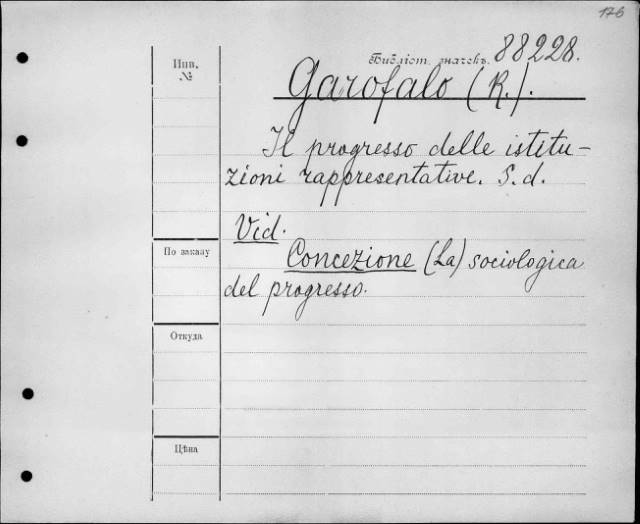 176
Инв.
№
Библіот. значекъ. 88228.
Garofalo (R.).
Il progresso delle istitu-
zioni rappresentative. S. d.
Vid.
Concezione (La) sociologica
del progresso.
По заказу
Откуда
Цѣна